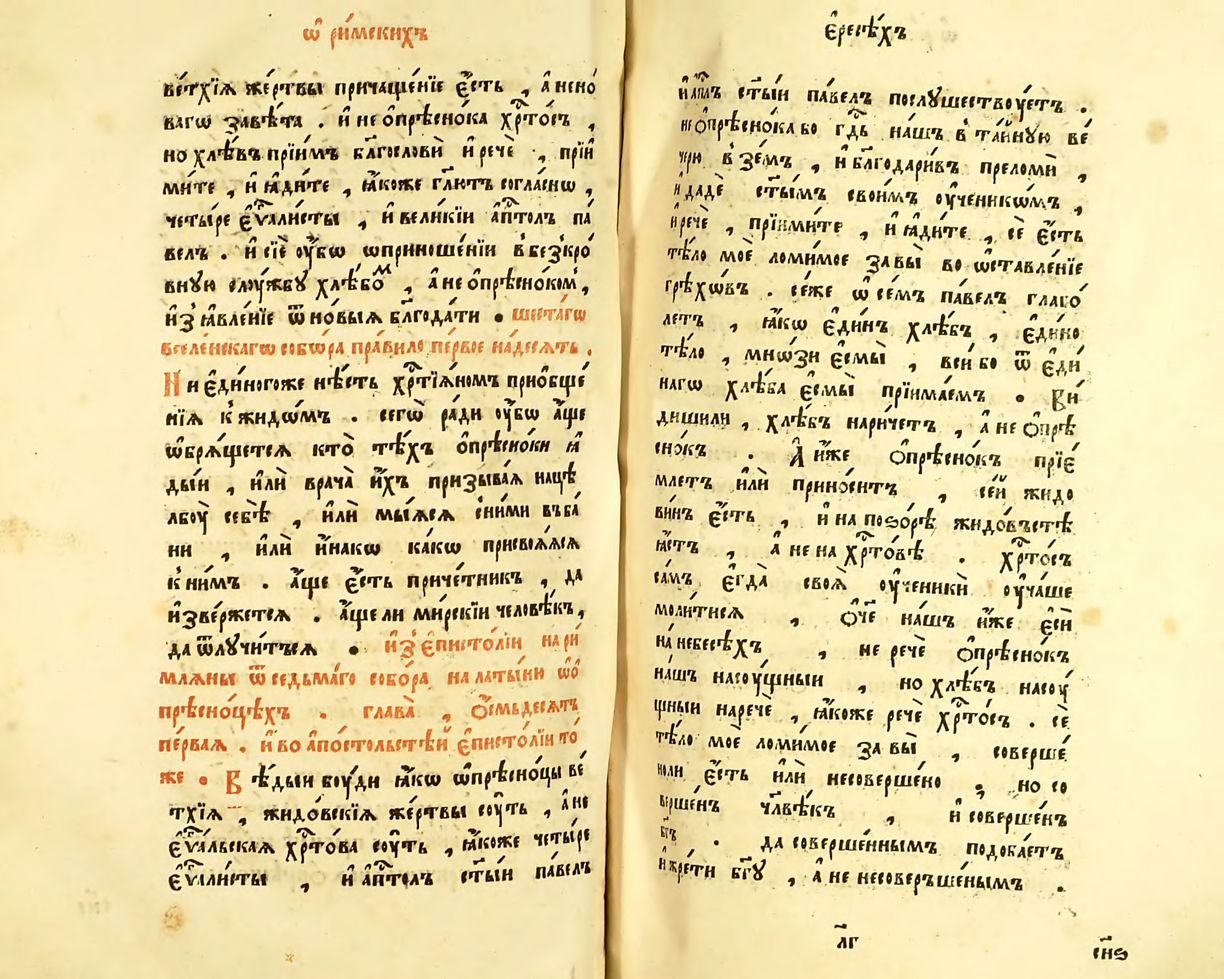 ѿ ри́мскихъ
ве́тхїѧ же́ртвы причаще́нїе є҆́сть , а҆ нено́
вагѡ завѣ́та . и҆ не ѻ҆прѣсно́ка хрⷭ҇то́съ ,
но хлѣ́въ прїи́мъ бл҃гословѝ и҆ речѐ , прїи
ми́те , и҆ ꙗ҆ди́те , ꙗ҆́коже гл҃ютъ согла́снѡ ,
четы́ре є҆ѵⷢ҇али́сты , и҆ вели́кїи а҆пⷭ҇толъ па́
велъ . и҆ сїѐ ᲂу҆́бѡ ѡ҆приноше́нїи в̾безкро́
вную слᲂу́жбу хлѣ́боⷨ , а҆ не ѻ҆прѣсно́ком̾ ,
и҆з̾ ꙗ҆вле́нїе ѿ но́выѧ бл҃года́ти . шеста́гѡ
вселе́нскагѡ собѡ́ра пра́вило пе́рвое на́десѧть .
Ни є҆ди́ногоже нѣ́сть хрⷭ҇тїѧ́номъ приѻ҆бще́
нїѧ к̾жидѡ́мъ . сегѡ̀ ра́ди ᲂу҆́бѡ а҆́ще
ѡ҆брѧ́щетсѧ кто̀ тѣ́хъ ѻ҆прѣсно́ки ꙗ҆
ды́и , и҆лѝ врача̀ и҆́хъ призыва́ѧ на цѣ
лбᲂу̀ себѣ̀ , и҆лѝ мы́ѧсѧ с̾ни́ми въ ба́
ни , и҆лѝ и҆́накѡ ка́кѡ присвоѧ́ѧсѧ
к̾ни́мъ . а҆́ще є҆́сть приче́тникъ , да
и҆зве́ржетсѧ . а҆́ще ли ми́рскїи человѣ́къ ,
да ѿлучи́тъсѧ . и҆з̾ є҆писто́лїи на ри́
млѧны ѿ седьма́го собо́ра на латы́ню ѡ҆ ѻ҆
прѣсно́цѣхъ . глава̀ , ѻ҆́смьдесѧтъ
пе́рваѧ . и҆ во а҆по́стольстѣй є҆писто́лїи то́
же . Вѣ́дыи бᲂу́ди ꙗ҆́кѡ ѡ҆прѣсно́цы ве́
тхїѧ , жидо́вскїѧ же́ртвы сᲂу́ть , а҆ не
є҆ѵⷢ҇а́льскаѧ хрⷭ҇то́ва сᲂу́ть , ꙗ҆́коже четы́ре
є҆ѵⷢ҇али́сты , и҆ а҆пⷭ҇толъ ст҃ы́и па́велъ
є҆́ресѣхъ
и҆ а҆пⷭ҇лъ ст҃ы́и па́велъ послꙋ́шествᲂуетъ .
не ѻ҆прѣсно́ка бо гдⷭ҇ь на́шъ в̾ та́йную ве́
черю в̾зе́мъ , и҆ бл҃годари́въ преломѝ ,
и҆ дадѐ ст҃ы́мъ свои́мъ ᲂу҆ченикѡ́мъ ,
и҆ речѐ , прїими́те , и҆ ꙗ҆ди́те , сѐ є҆́сть
тѣ́ло моѐ ломи́мое за вы̀ во ѡ҆ставле́нїе
грѣхѡ́въ . се́же ѡ҆ се́мъ па́велъ глаго́
летъ , ꙗ҆́кѡ є҆ди́нъ хлѣ́бъ , є҆ди́но
тѣ́ло , мнѡ́зи є҆смы̀ , вси́ бо ѿ є҆ди́
нагѡ хлѣ́ба є҆смы̀ прїима́емъ . Ви́
дишили , хлѣ́бъ нарича́етъ , а҆ не ѻ҆прѣ
сно́къ . А҆ и҆́же ѻ҆прѣсно́къ прїе́
млетъ и҆лѝ прино́ситъ , се́й жидо
ви́нъ є҆́сть , и҆ на позо́рѣ жидо́въстѣ
ꙗ҆́стъ , а҆ не на хрⷭ҇то́вѣ . хрⷭ҇то́съ
са́мъ є҆гда̀ своѧ̀ ᲂу҆ченикѝ ᲂу҆ча́ше
моли́тисѧ , ѻ҆́ч҃е на́шъ и҆́же є҆сѝ
на небесѣ́хъ , не речѐ ѻ҆прѣсно́къ
на́шъ насᲂу́щныи , но хлѣ́бъ насᲂу́
щныи наречѐ , ꙗ҆́коже речѐ хрⷭ҇то́съ . сѐ
тѣ́ло моѐ ломи́мое за вы̀ , соверше́
нолиє҆́сть и҆лѝ несоверше́но , но со
верше́нъ чл҃вѣ́къ , и҆ соверше́нъ
бг҃ъ . да соверше́ннымъ подоба́етъ
и҆ жре́ти бг҃ꙋ , а҆ не несовершеннымъ .
л҃г
сн҃ѕ